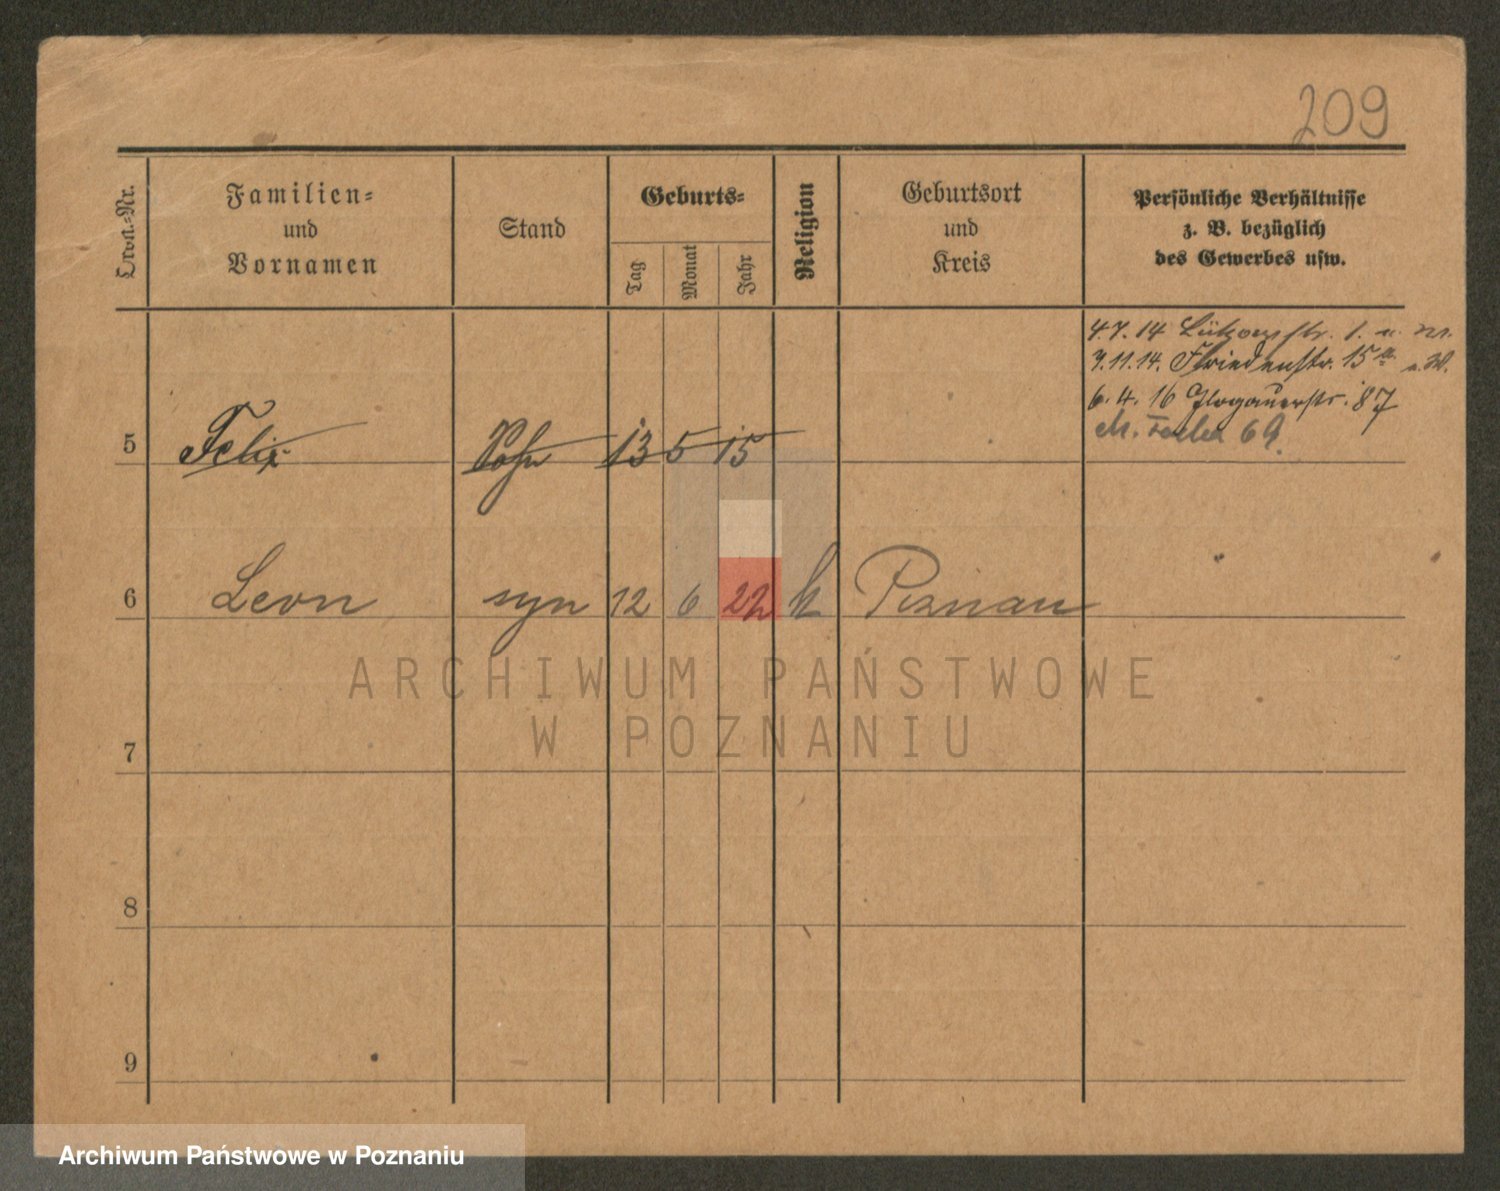 209
Ordn.-Nr.
Familien-
und
Vornamen
Stand
Geburts-
Tag
Monat
Jahr
Religion
Geburtsort
und
Kreis
Persönliche Verhältnisse
z. B. bezüglich
des Gewerbes usw.
4.7.14 Lützowstr. 1.
7.11.14. Friedenstr. 15
6.4.16 Glogauerstr. 87
M. Focha 69
5 Felix Sohn 13 5 15
6 Leon syn 12 6 22 k Poznań
ARCHIWUM PAŃSTWOWE
W POZNANIU
7
8
9
Archiwum Państwowe w Poznaniu